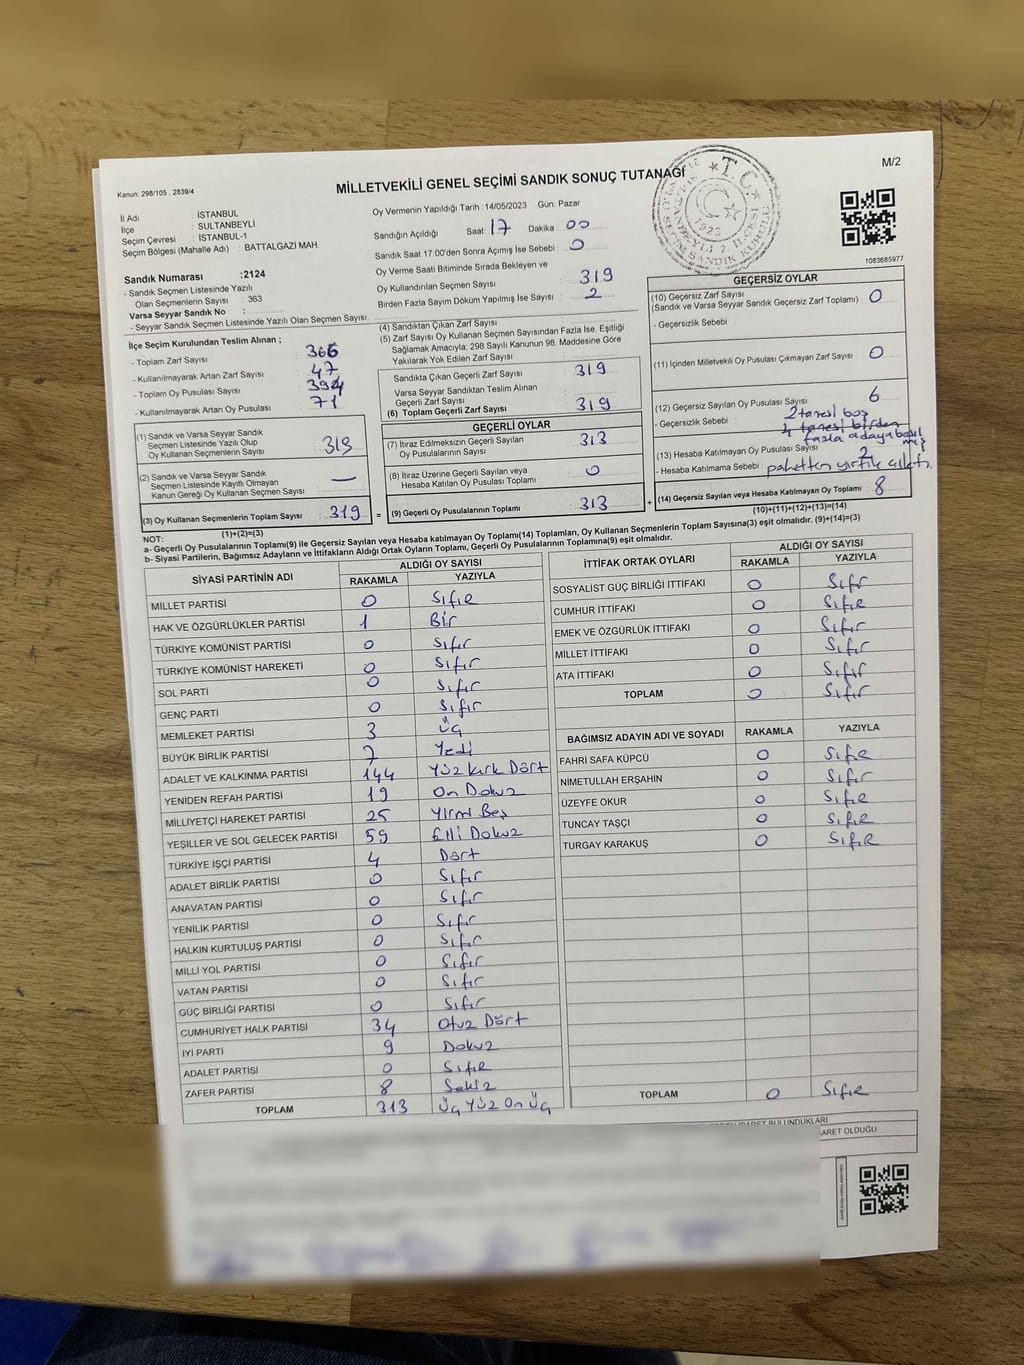 Kanun: 298/105 , 2839/4
M/2
MİLLETVEKİLİ GENEL SEÇİMİ SANDIK SONUÇ TUTANAĞI
İl Adı : İSTANBUL
İlçe : SULTANBEYLİ
Seçim Çevresi : İSTANBUL-1
Seçim Bölgesi (Mahalle Adı) : BATTALGAZİ MAH.
Oy Vermenin Yapıldığı Tarih :14/05/2023 Gün: Pazar
Sandığın Açıldığı Saat: 17 Dakika : 00
Sandık Saat 17.00'den Sonra Açımış İse Sebebi : 0
Oy Verme Saati Bitiminde Sırada Bekleyen ve
Oy Kullandırılan Seçmen Sayısı : 319
Birden Fazla Sayım Döküm Yapılmış İse Sayısı : 2
T.C.
1923
1083685977
Sandık Numarası :2124
- Sandık Seçmen Listesinde Yazılı
Olan Seçmenlerin Sayısı : 363
Varsa Seyyar Sandık No :
- Seyyar Sandık Seçmen Listesinde Yazılı Olan Seçmen Sayısı:
İlçe Seçim Kurulundan Teslim Alınan ;
- Toplam Zarf Sayısı : 366
- Kullanılmayarak Artan Zarf Sayısı : 47
- Toplam Oy Pusulası Sayısı : 394
- Kullanılmayarak Artan Oy Pusulası : 71
(1) Sandık ve Varsa Seyyar Sandık
Seçmen Listesinde Yazılı Olup
Oy Kullanan Seçmenlerin Sayısı : 319
(2) Sandık ve Varsa Seyyar Sandık
Seçmen Listesinde Kayıtlı Olmayan
Kanun Gereği Oy Kullanan Seçmen Sayısı : —
(3) Oy Kullanan Seçmenlerin Toplam Sayısı : 319
(1)+(2)=(3)
(4) Sandıktan Çıkan Zarf Sayısı :
(5) Zarf Sayısı Oy Kullanan Seçmen Sayısından Fazla İse, Eşitliği
Sağlamak Amacıyla, 298 Sayılı Kanunun 98. Maddesine Göre
Yakılarak Yok Edilen Zarf Sayısı :
Sandıkta Çıkan Geçerli Zarf Sayısı : 319
Varsa Seyyar Sandıktan Teslim Alınan
Geçerli Zarf Sayısı :
(6) Toplam Geçerli Zarf Sayısı : 319
GEÇERLİ OYLAR
(7) İtiraz Edilmeksizin Geçerli Sayılan
Oy Pusulası Sayısı : 313
(8) İtiraz Üzerine Geçerli Sayılan veya
Hesaba Katılan Oy Pusulası Toplamı : 0
= (9) Geçerli Oy Pusulalarının Toplamı : 313 +
GEÇERSİZ OYLAR
(10) Geçersiz Zarf Sayısı
(Sandık ve Varsa Seyyar Sandık Geçersiz Zarf Toplamı) : 0
- Geçersizlik Sebebi :
(11) İçinden Milletvekili Oy Pusulası Çıkmayan Zarf Sayısı : 0
(12) Geçersiz Sayılan Oy Pusulası Sayısı : 6
- Geçersizlik Sebebi : 2 tanesi boş
4 tanesi birden
fazla adaya basılmış
(13) Hesaba Katılmayan Oy Pusulası Sayısı : 2
- Hesaba Katılmama Sebebi : paketten yırtık çıktı.
(14) Geçersiz Sayılan veya Hesaba Katılmayan Oy Toplamı : 8
(10)+(11)+(12)+(13)=(14)
NOT:
a- Geçerli Oy Pusulalarının Toplamı(9) ile Geçersiz Sayılan veya Hesaba katılmayan Oy Toplamı(14) Toplamları, Oy Kullanan Seçmenlerin Toplam Sayısına(3) eşit olmalıdır. (9)+(14)=(3)
b- Siyasi Partilerin, Bağımsız Adayların ve İttifakların Aldığı Ortak Oyların Toplamı, Geçerli Oy Pusulalarının Toplamına(9) eşit olmalıdır.
SİYASİ PARTİNİN ADI
ALDIĞI OY SAYISI
RAKAMLA YAZIYLA
MİLLET PARTİSİ 0 Sıfır
HAK VE ÖZGÜRLÜKLER PARTİSİ 1 Bir
TÜRKİYE KOMÜNİST PARTİSİ 0 Sıfır
TÜRKİYE KOMÜNİST HAREKETİ 0 Sıfır
SOL PARTİ 0 Sıfır
GENÇ PARTİ 0 Sıfır
MEMLEKET PARTİSİ 3 Üç
BÜYÜK BİRLİK PARTİSİ 7 Yedi
ADALET VE KALKINMA PARTİSİ 144 Yüz Kırk Dört
YENİDEN REFAH PARTİSİ 19 On Dokuz
MİLLİYETÇİ HAREKET PARTİSİ 25 Yirmi Beş
YEŞİLLER VE SOL GELECEK PARTİSİ 59 Elli Dokuz
TÜRKİYE İŞÇİ PARTİSİ 4 Dört
ADALET BİRLİK PARTİSİ 0 Sıfır
ANAVATAN PARTİSİ 0 Sıfır
YENİLİK PARTİSİ 0 Sıfır
HALKIN KURTULUŞ PARTİSİ 0 Sıfır
MİLLİ YOL PARTİSİ 0 Sıfır
VATAN PARTİSİ 0 Sıfır
GÜÇ BİRLİĞİ PARTİSİ 0 Sıfır
CUMHURİYET HALK PARTİSİ 34 Otuz Dört
İYİ PARTİ 9 Dokuz
ADALET PARTİSİ 0 Sıfır
ZAFER PARTİSİ 8 Sekiz
TOPLAM 313 Üç Yüz On Üç
İTTİFAK ORTAK OYLARI
ALDIĞI OY SAYISI
RAKAMLA YAZIYLA
SOSYALİST GÜÇ BİRLİĞİ İTTİFAKI 0 Sıfır
CUMHUR İTTİFAKI 0 Sıfır
EMEK VE ÖZGÜRLÜK İTTİFAKI 0 Sıfır
MİLLET İTTİFAKI 0 Sıfır
ATA İTTİFAKI 0 Sıfır
TOPLAM 0 Sıfır
BAĞIMSIZ ADAYIN ADI VE SOYADI RAKAMLA YAZIYLA
FAHRİ SAFA KÜPCÜ 0 Sıfır
NİMETULLAH ERŞAHİN 0 Sıfır
ÜZEYFE OKUR 0 Sıfır
TUNCAY TAŞÇI 0 Sıfır
TURGAY KARAKUŞ 0 Sıfır
TOPLAM 0 Sıfır
BULUNDUKLARI
OLDUĞU